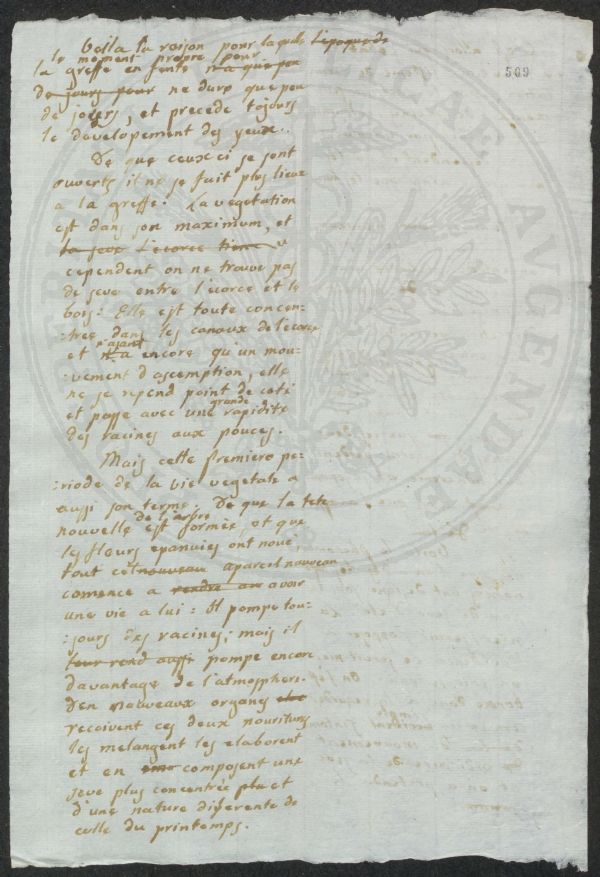 509
Voila la raison pour laquelle l'epoque de
le moment propre pour
la greffe en fente n'a que peu
de jours pour ne dure que peu
de jours, et precede tojours
le developement des yeux..
De que ceux ci se sont
ouverts il ne se fait plus lieu
a la greffe: La vegetation
est dans son maximum, et
la seve l'ecorce tient a
cependent on ne trouve pas
de seve entre l'ecorce et le
bois: Elle est toute concen:
:tree dans les canaux de l'ecorce
n'ajant
et n'a encore qu'un mou:
:vement d'ascemption, elle
ne se repend point de coté
grande
et passe avec une rapidité
des racines aux pouces.
Mais cette premiere pe:
:riode de la vie vegetale a
aussi son terme. De que la tete
de l'arbre
nouvelle est formée, et que
les fleurs epanuies ont noué
tout cet nouveau apareil nouveau
comence a rendre an avoir
une vie a lui: Il pompe tou:
:jours des racines; mais il
leur rend aussi pompe encore
davantage de l'atmosphere.
Den nauveaux organs
recoivent ces deux nouritures
les melangent les elaborent
et en composent une
seve plus concentrée plu et
d'une nature diferente de
celle du printemps.